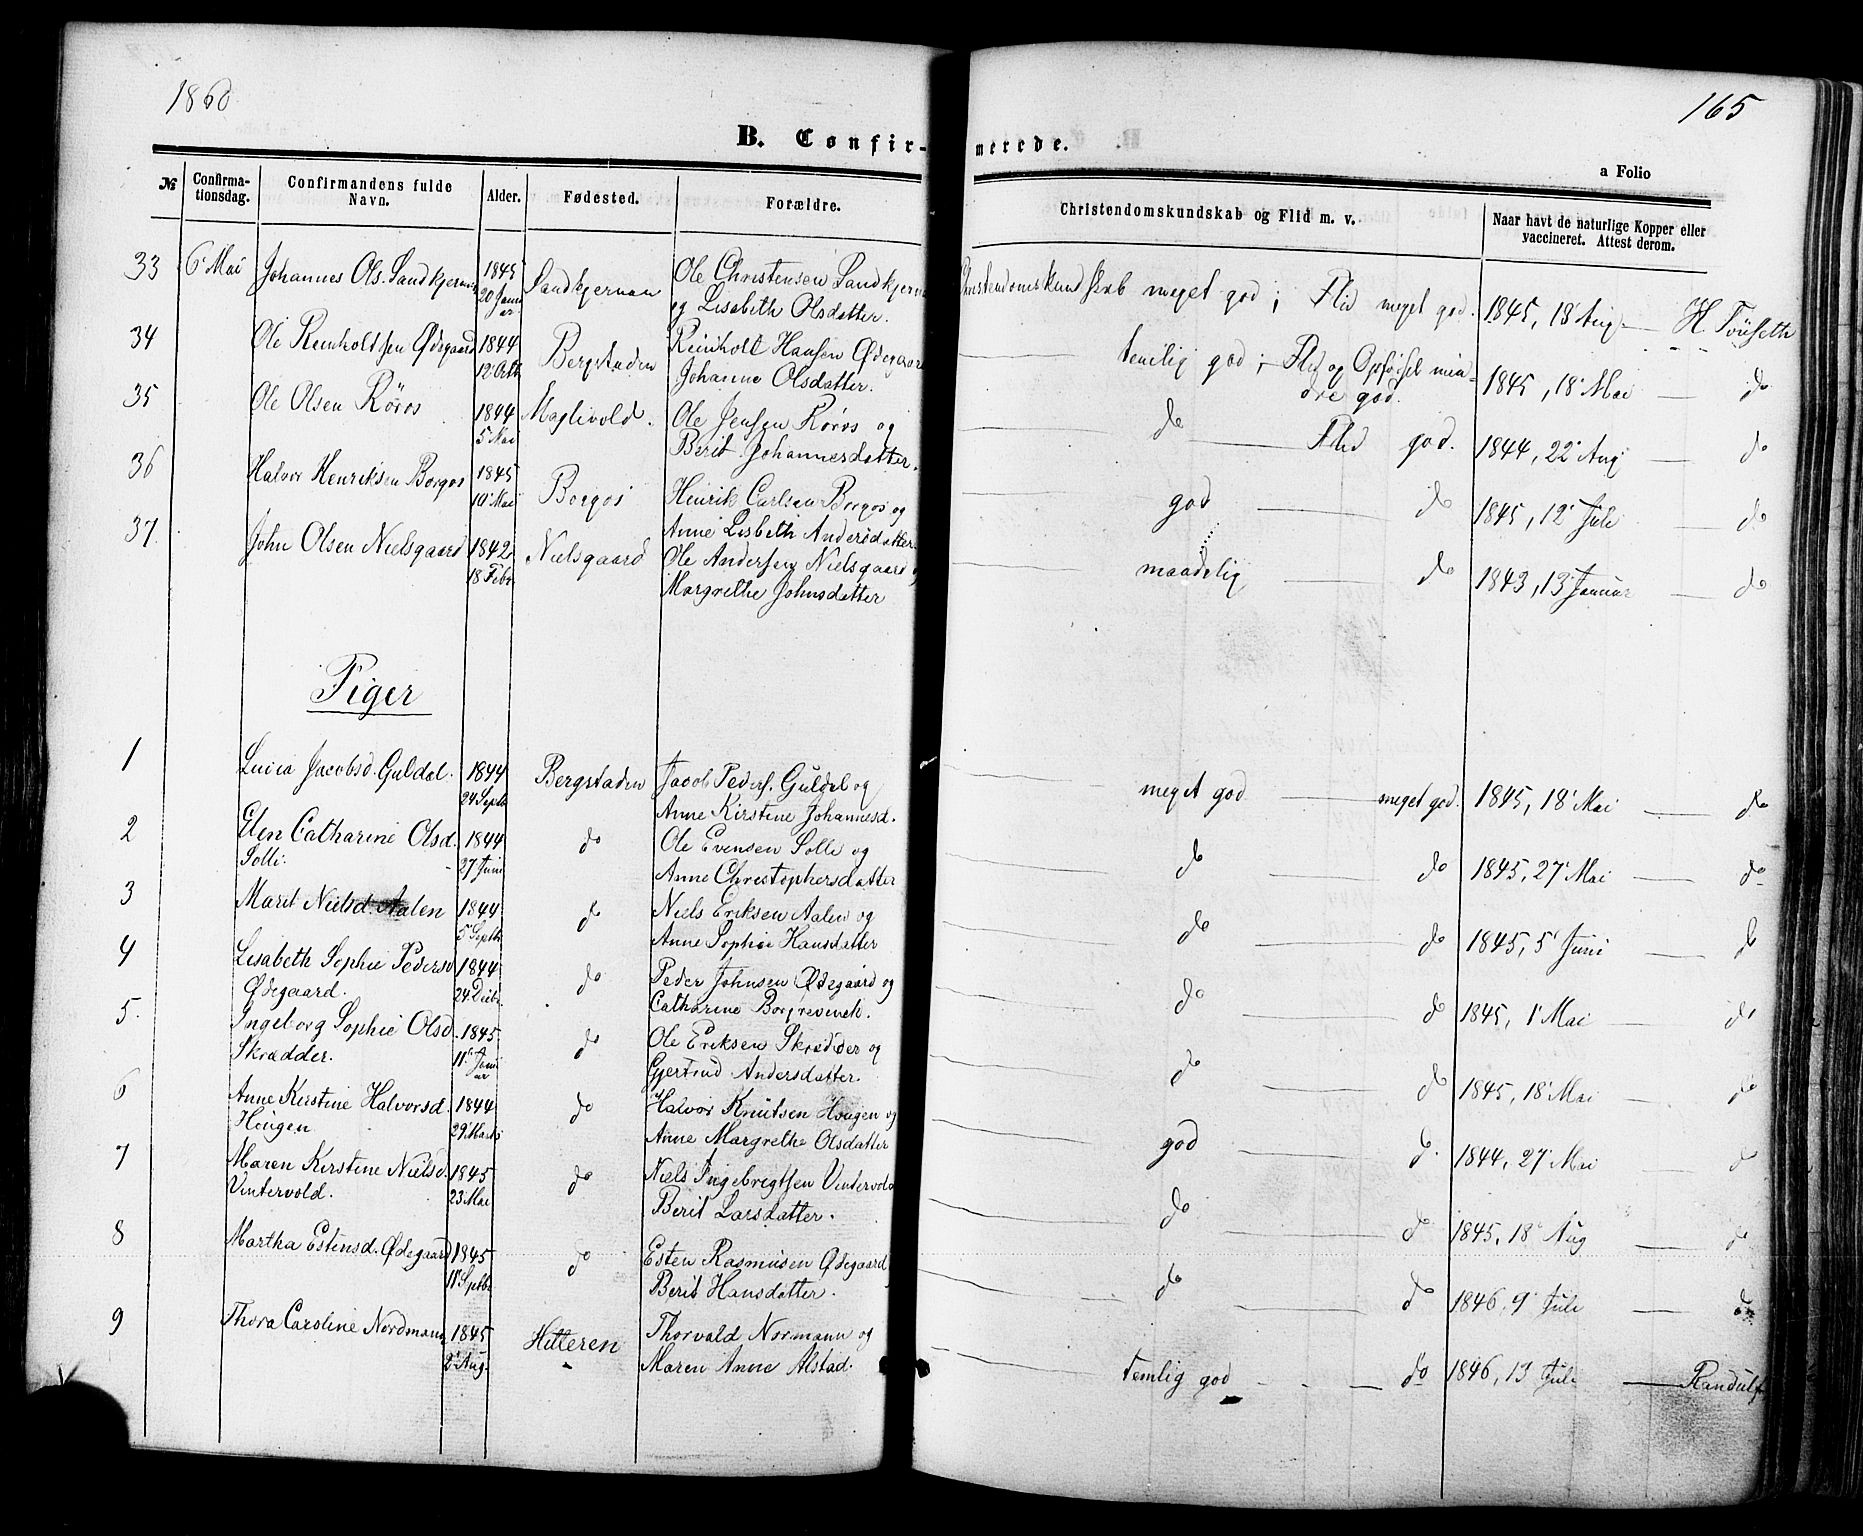 1860
165
B. Confir-merede.
a Folio
№ Confirma-tionsdag. Confirmandens fulde Navn. Alder. Fødested. Forældre. Christendomskundskab og Flid m. v. Naar havt de naturlige Kopper eller vaccineret. Attest derom.
33 6 Mai Johannes Ols. Sandkjernan 1845 Sandkjernan Ole Christensen Sandkjern Christendomskundskab meget god; Flid meget god. 1845, 18 Aug — H. Touseth
20 Januar og Lisabeth Olsdatter.
34 Ole Reinholdtsen Ødegaard 1844 Bergstaden Reinholt Hansen Ødegaard temlig god; Flid og Opførsel min- 1845, 18 Mai — do
12 Octb Johanne Olsdatter. dre god.
35 Ole Olsen Røros 1844 Ole Jensen Røros og do — Flid god. 1844, 22 Aug do
5 Mai Berit Johannesdatter.
36 Halvor Henriksen Borgos 1845 Borgos Henrik Carlsen Borgos og god — do 1845, 12 Juli — do
10 Mai Anne Lisbeth Andersdatter
37. John Olsen Nielsgaard 1842 Nielsgaard Ole Andersen Nielsgaard og maadelig — do 1843, 13 Januar — do
18 Febr Margrethe Johnsdatter
Piger
1 Lucia Jacobsd. Guldal. 1844 Bergstaden Jacob Peders. Guldal og meget god — meget god. 1845, 18 Mai — do
24 Septb Anne Kirstine Johannesd.
2 Elen Catharine Olsd. 1844 do Ole Evensen Solli og do — do 1845, 27 Mai — do
Solli. 27 Juni Anne Christophersdatter
3 Marit Nielsd. Aalen 1844 do Niels Eriksen Aalen og do — do 1845, 5 Juni do
5 Septb Anne Sophie Hansdatter
4 Lisabeth Sophie Pedersd 1844 do Peder Johnsen Ødegaard og do — do 1845, 1 Mai — do
Ødegaard. 24 Decbr. Catharine Borgrevinck.
5. Ingeborg Sophie Olsd. 1845 do Ole Eriksen Skrædder og do — do 1845, 18 Mai — do
Skrædder. 11 Januar Gjertrud Andersdatter.
6 Anne Kirstine Halvorsd. 1844 do Halvor Knutsen Hougen og god — do. 1844, 27 Mai — do
Hougen 29 Marts Anne Margrethe Olsdatter
7 Maren Kirstine Nielsd. 1845 do Niels Ingebrigtsen Vintervold do — do 1845, 18 Aug — do
Vintervold. 23 Mai Berit Larsdatter.
8 Martha Estensd. Ødegaard 1845 do Esten Rasmusen Ødegaard do — do 1846, 9 Juli — do
11 Septbr Berit Hansdatter.
9 Thora Caroline Nordmann 1845 Hitteren Thorvald Normann og temlig god - - — do 1846, 13 Juli — Randulf
2 Aug. Maren Anne Alstad.